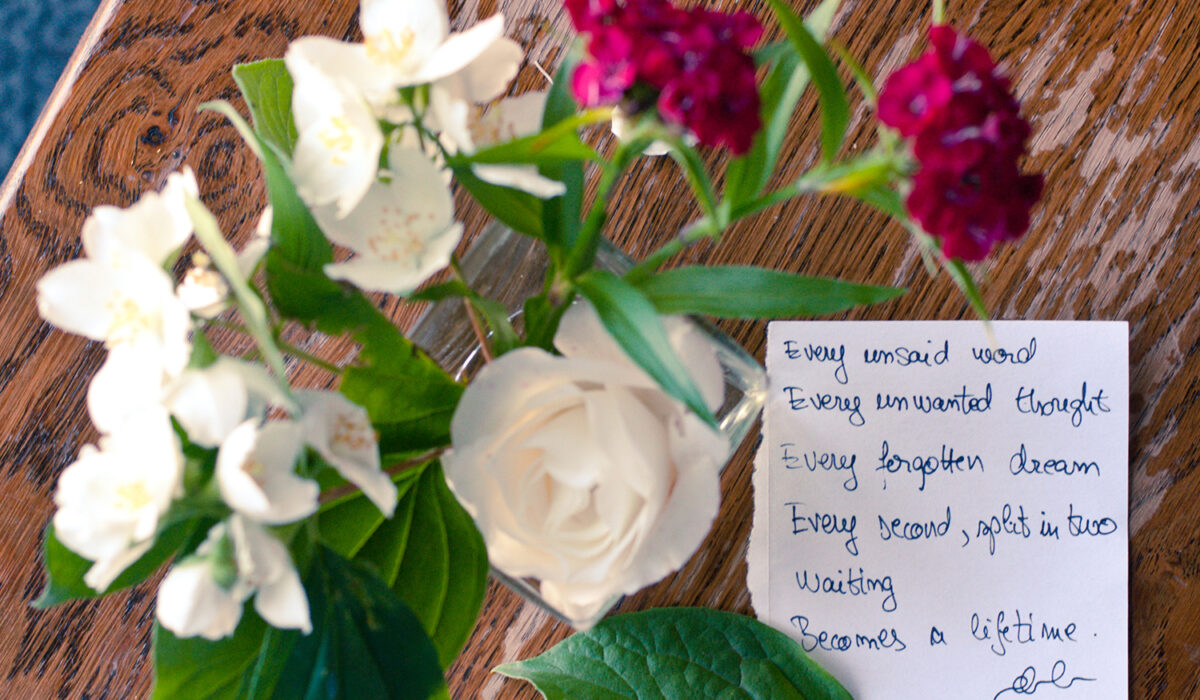 Every unsaid word
Every unwanted thought
Every forgotten dream
Every second, split in two
Waiting
Becomes a lifetime.